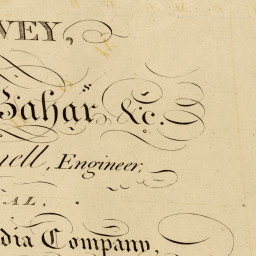 VEY,
Bahar, &c.
ell, Engineer,
AL,
dia Company,